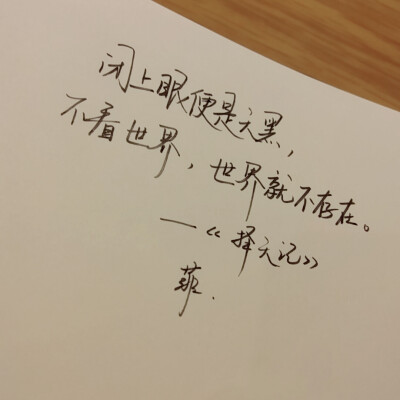 闭上眼便是天黑，
不看世界，世界就不存在。
—《择天记》
菲.